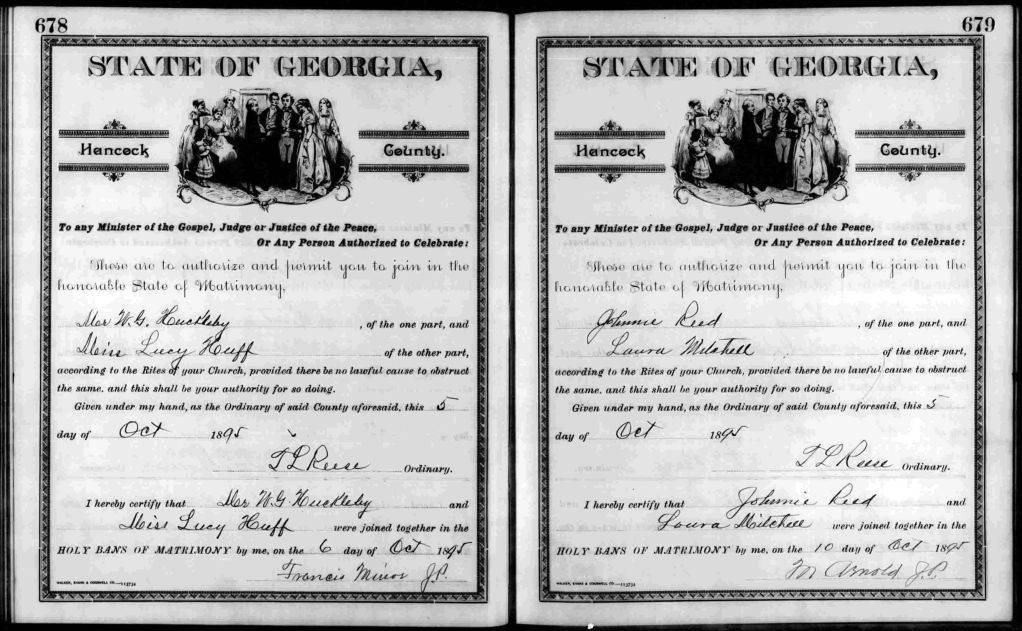 678
STATE OF GEORGIA,
Hancock County.
To any Minister of the Gospel, Judge or Justice of the Peace,
Or Any Person Authorized to Celebrate:
These are to authorize and permit you to join in the
honorable State of Matrimony,
Mr W. G. Huckleby , of the one part, and
Miss Lucy Huff of the other part,
according to the Rites of your Church, provided there be no lawful cause to obstruct
the same, and this shall be your authority for so doing.
Given under my hand, as the Ordinary of said County aforesaid, this 5
day of Oct 1895
T L Reese Ordinary.
I hereby certify that Mr W. G. Huckleby and
Miss Lucy Huff were joined together in the
HOLY BANS OF MATRIMONY by me, on the 6 day of Oct 1895
Francis Minor J.P.
WALKER, EVANS & COGSWELL CO.—113734
679
STATE OF GEORGIA,
Hancock County.
To any Minister of the Gospel, Judge or Justice of the Peace,
Or Any Person Authorized to Celebrate:
These are to authorize and permit you to join in the
honorable State of Matrimony,
Johnnie Reed , of the one part, and
Laura Mitchell of the other part,
according to the Rites of your Church, provided there be no lawful cause to obstruct
the same, and this shall be your authority for so doing.
Given under my hand, as the Ordinary of said County aforesaid, this 5
day of Oct 1895
T L Reese Ordinary.
I hereby certify that Johnnie Reed and
Laura Mitchell were joined together in the
HOLY BANS OF MATRIMONY by me, on the 10 day of Oct 1895
Arnold J.P.
WALKER, EVANS & COGSWELL CO.—113734